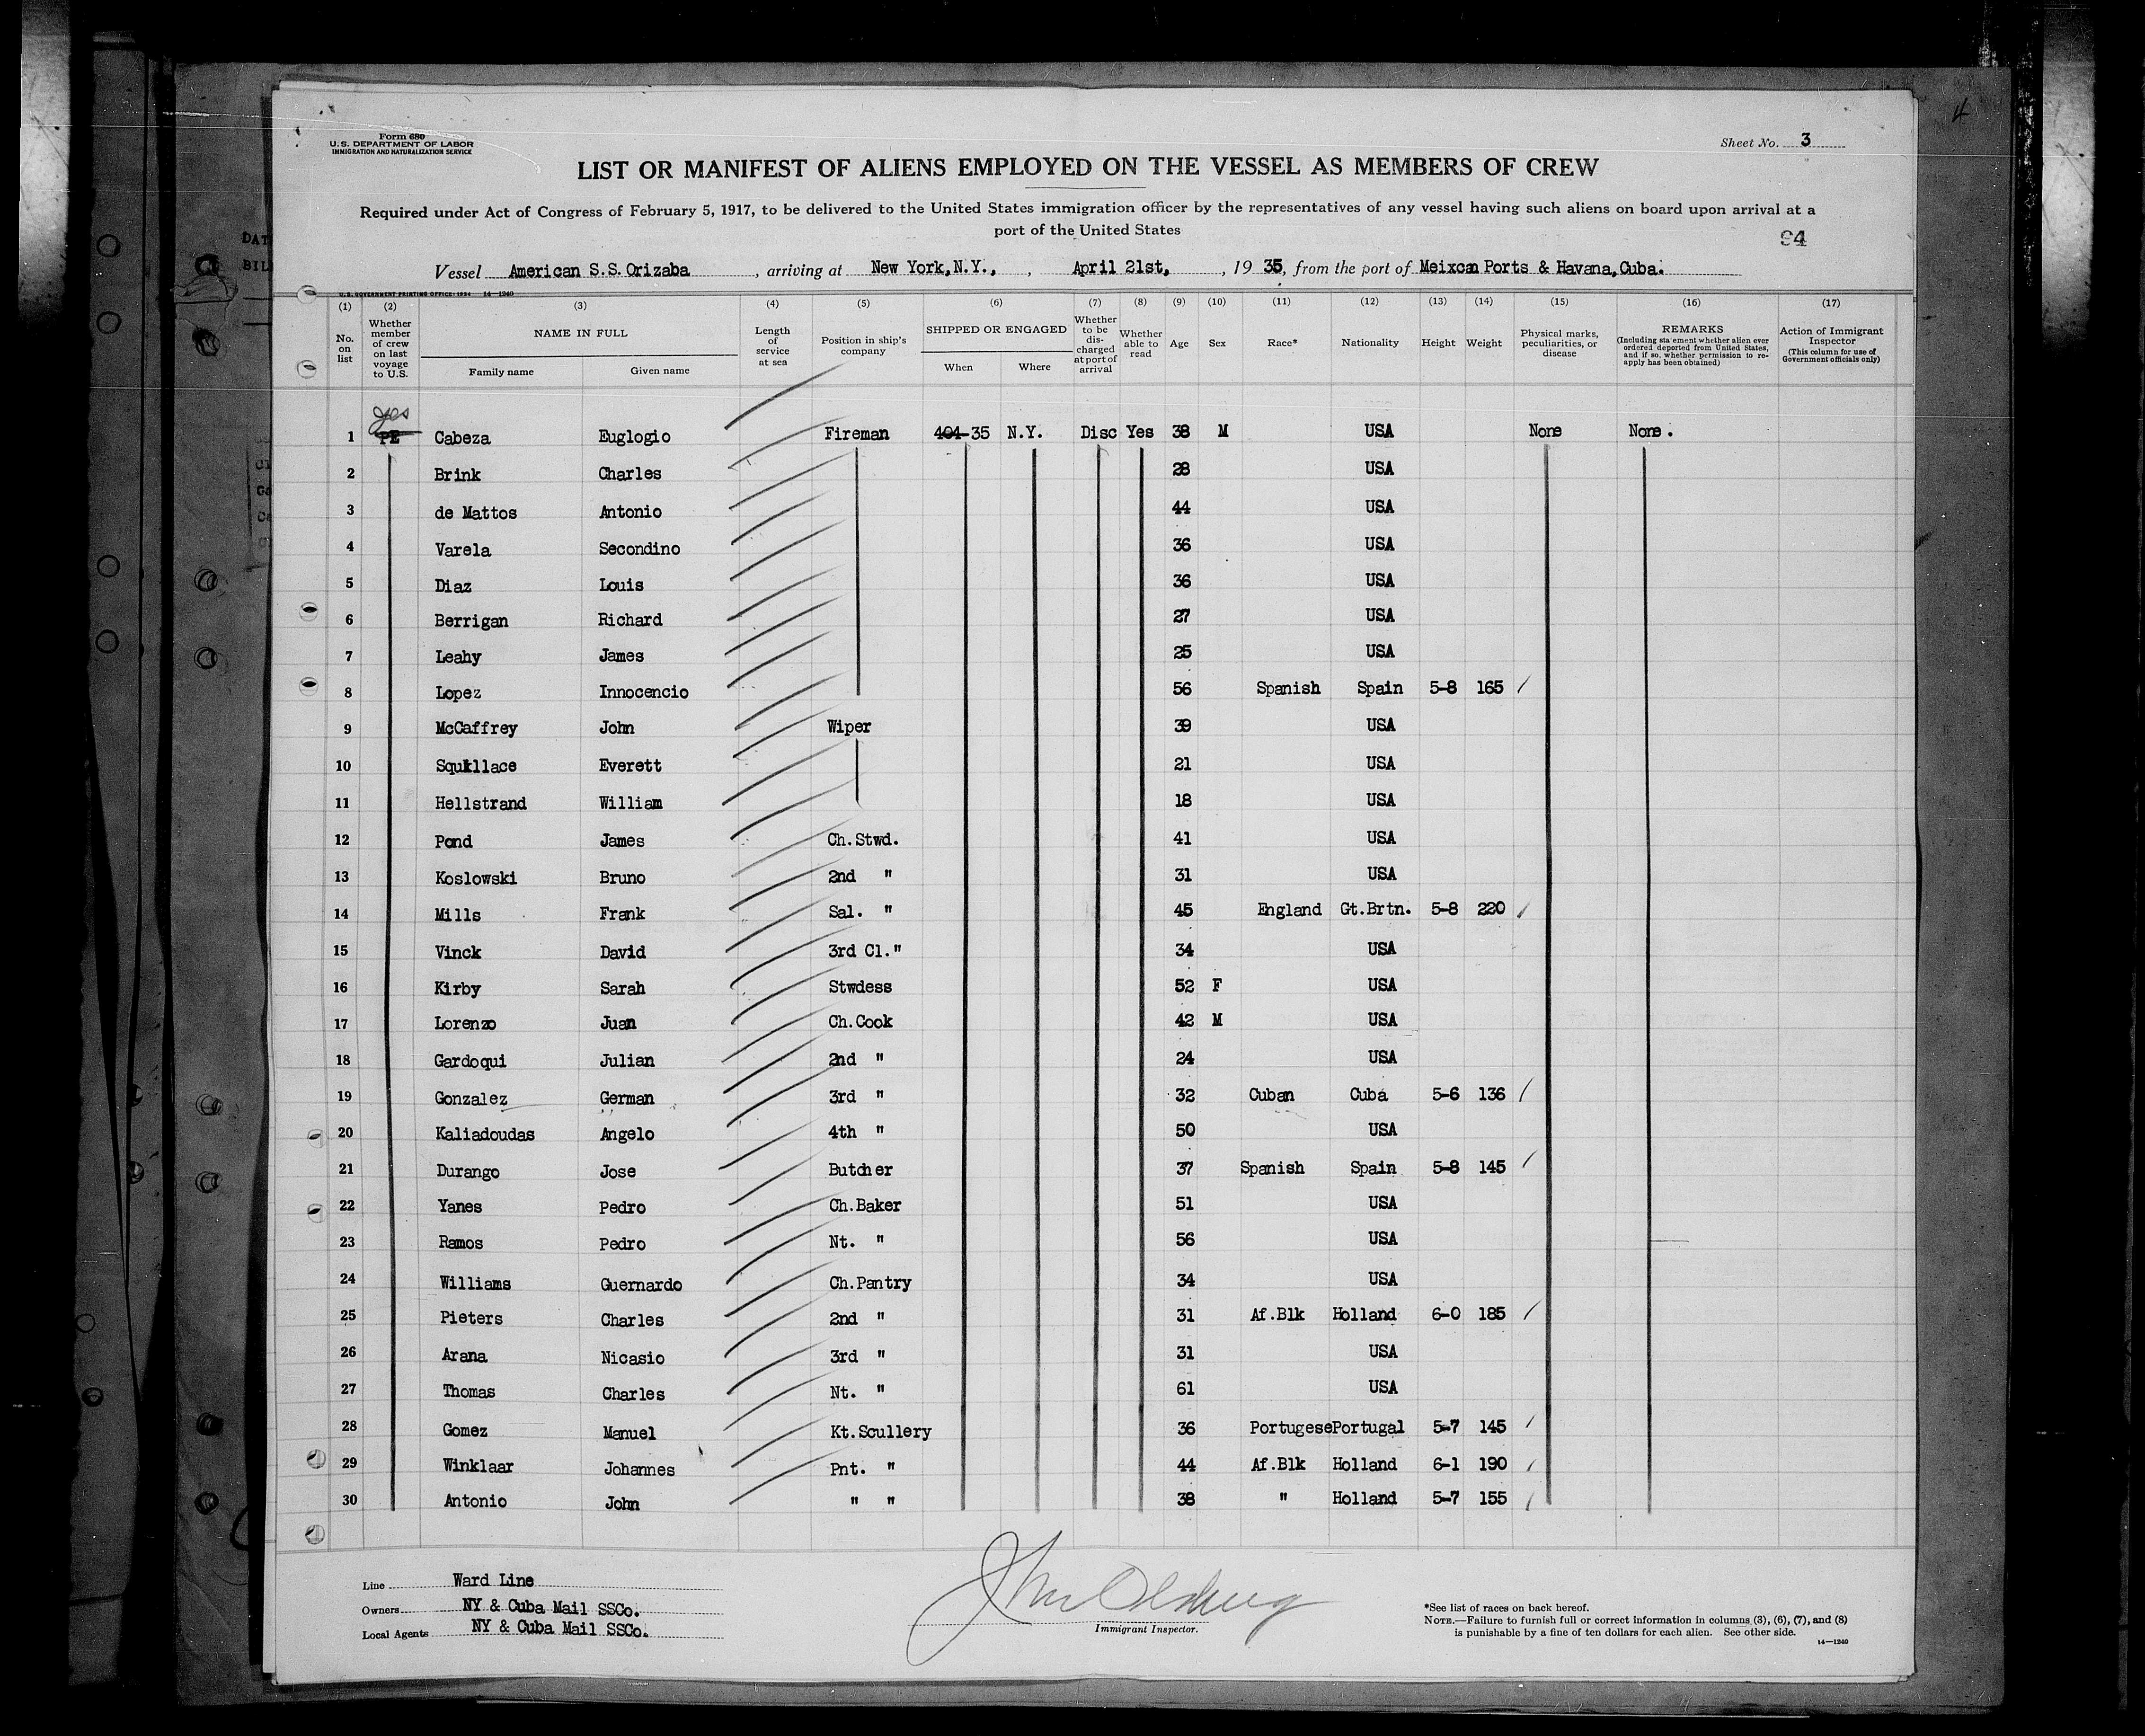 Form 680
U.S. DEPARTMENT OF LABOR
IMMIGRATION AND NATURALIZATION SERVICE
Sheet No. 3
LIST OR MANIFEST OF ALIENS EMPLOYED ON THE VESSEL AS MEMBERS OF CREW
Required under Act of Congress of February 5, 1917, to be delivered to the United States immigration officer by the representatives of any vessel having such aliens on board upon arrival at a
port of the United States
94
Vessel American S.S.Orizaba, arriving at New York,N.Y., , April 21st, , 1935, from the port of Meixcan Ports & Havana,Cuba.
U.S. GOVERNMENT PRINTING OFFICE: 1934 14—1240
(1) (2) (3) (4) (5) (6) (7) (8) (9) (10) (11) (12) (13) (14) (15) (16) (17)
No. on list Whether member of crew on last voyage to U.S. NAME IN FULL Family name Given name Length of service at sea Position in ship's company SHIPPED OR ENGAGED When Where Whether to be discharged at port of arrival Whether able to read Age Sex Race* Nationality Height Weight Physical marks, peculiarities, or disease REMARKS (Including statement whether alien ever ordered deported from United States, and if so, whether permission to reapply has been obtained) Action of Immigrant Inspector (This column for use of Government officials only)
yes
1 PE Cabeza Euglogio Fireman 404-35 N.Y. Disc Yes 38 M USA None None.
2 Brink Charles 28 USA
3 de Mattos Antonio 44 USA
4 Varela Secondino 36 USA
5 Diaz Louis 36 USA
6 Berrigan Richard 27 USA
7 Leahy James 25 USA
8 Lopez Innocencio 56 Spanish Spain 5-8 165
9 McCaffrey John Wiper 39 USA
10 Squillace Everett 21 USA
11 Hellstrand William 18 USA
12 Pond James Ch.Stwd. 41 USA
13 Koslowski Bruno 2nd " 31 USA
14 Mills Frank Sal. " 45 England Gt.Brtn. 5-8 220
15 Vinck David 3rd Cl." 34 USA
16 Kirby Sarah Stwdess 52 F USA
17 Lorenzo Juan Ch.Cook 42 M USA
18 Gardoqui Julian 2nd " 24 USA
19 Gonzalez German 3rd " 32 Cuban Cuba 5-6 136
20 Kaliadoudas Angelo 4th " 50 USA
21 Durango Jose Butcher 37 Spanish Spain 5-8 145
22 Yanes Pedro Ch.Baker 51 USA
23 Ramos Pedro Nt. " 56 USA
24 Williams Guernardo Ch.Pantry 34 USA
25 Pieters Charles 2nd " 31 Af.Blk Holland 6-0 185
26 Arana Nicasio 3rd " 31 USA
27 Thomas Charles Nt. " 61 USA
28 Gomez Manuel Kt.Scullery 36 Portugese Portugal 5-7 145
29 Winklaar Johannes Pnt. " 44 Af.Blk Holland 6-1 190
30 Antonio John " " 38 " Holland 5-7 155
Line Ward Line
Owners NY & Cuba Mail SSCo.
Local Agents NY & Cuba Mail SSCo.
Immigrant Inspector.
*See list of races on back hereof.
NOTE.—Failure to furnish full or correct information in columns (3), (6), (7), and (8)
is punishable by a fine of ten dollars for each alien. See other side.
14—1240